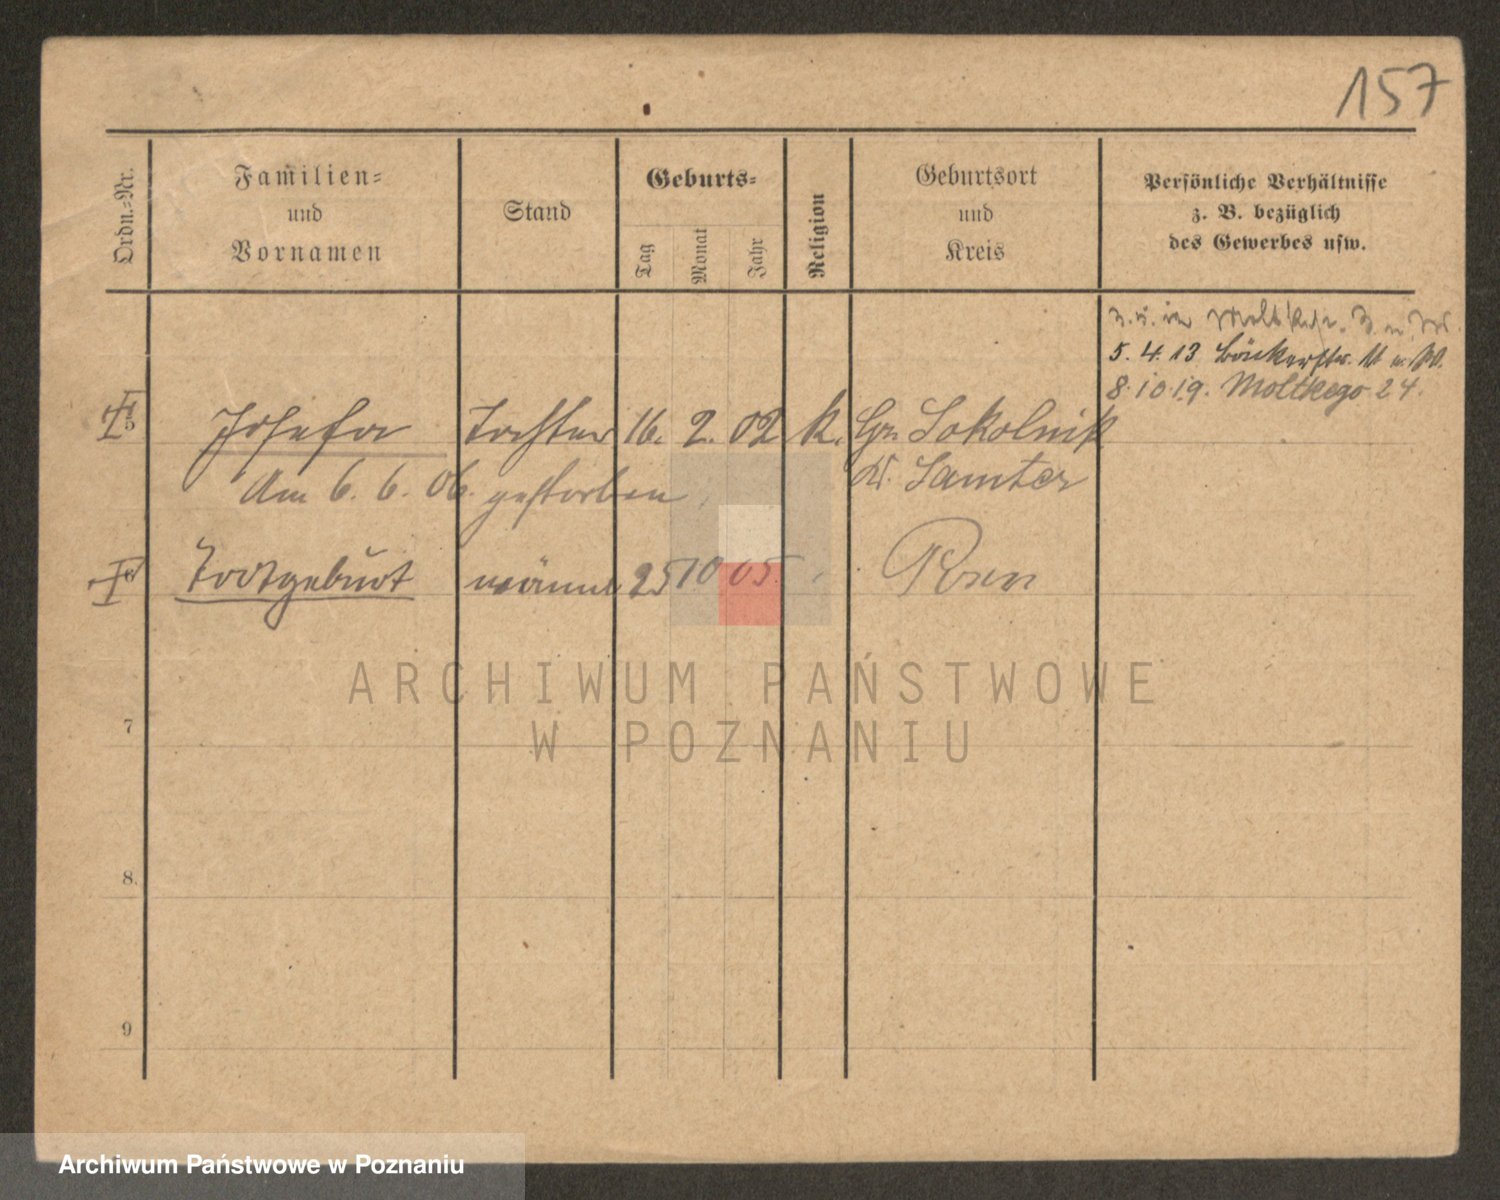 157
Ordn.-Nr.
Familien-
und
Vornamen
Stand
Geburts-
Tag
Monat
Jahr
Religion
Geburtsort
und
Kreis
Persönliche Verhältnisse
z. B. bezüglich
des Gewerbes usw.
5. 4. 13 Bäckerstr.
8.10.19. Moltkego 24.
5
Josefa Tochter 16. 2. 02 k. Gr. Sokolnik
Am 6. 6. 06. gestorben Kr. Samter
Todtgeburt männl 25 10 05 Posen
ARCHIWUM PAŃSTWOWE
W POZNANIU
7
8.
9
Archiwum Państwowe w Poznaniu